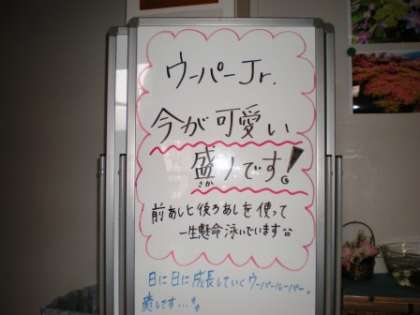 ウーパーJr.
今が可愛い
盛りです!
さか
前あしと後ろあしを使って
一生懸命泳いでいます
日に日に成長していくウーパールーパー。
癒しです…